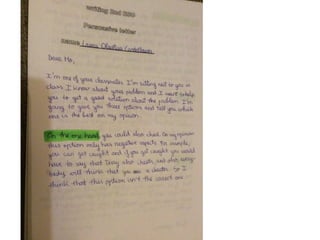 writing 2nd ESO
Persuasive letter
name: Olaya
Dear Mo,
I'm one of your classmates. I'm sitting next to you in
class. I know about your problem and I want to help
you to get a good solution about the problem. I'm
going to give you three options and tell you which
one is the best on my opinion.
On the one hand, you could also cheat. On my opinion
this option only has negative aspects. For example,
you can get caught and if you get caught you would
have to say that Tessy also cheats and also every-
body will think that you are a cheater. So I
think that this option isn't the correct one.